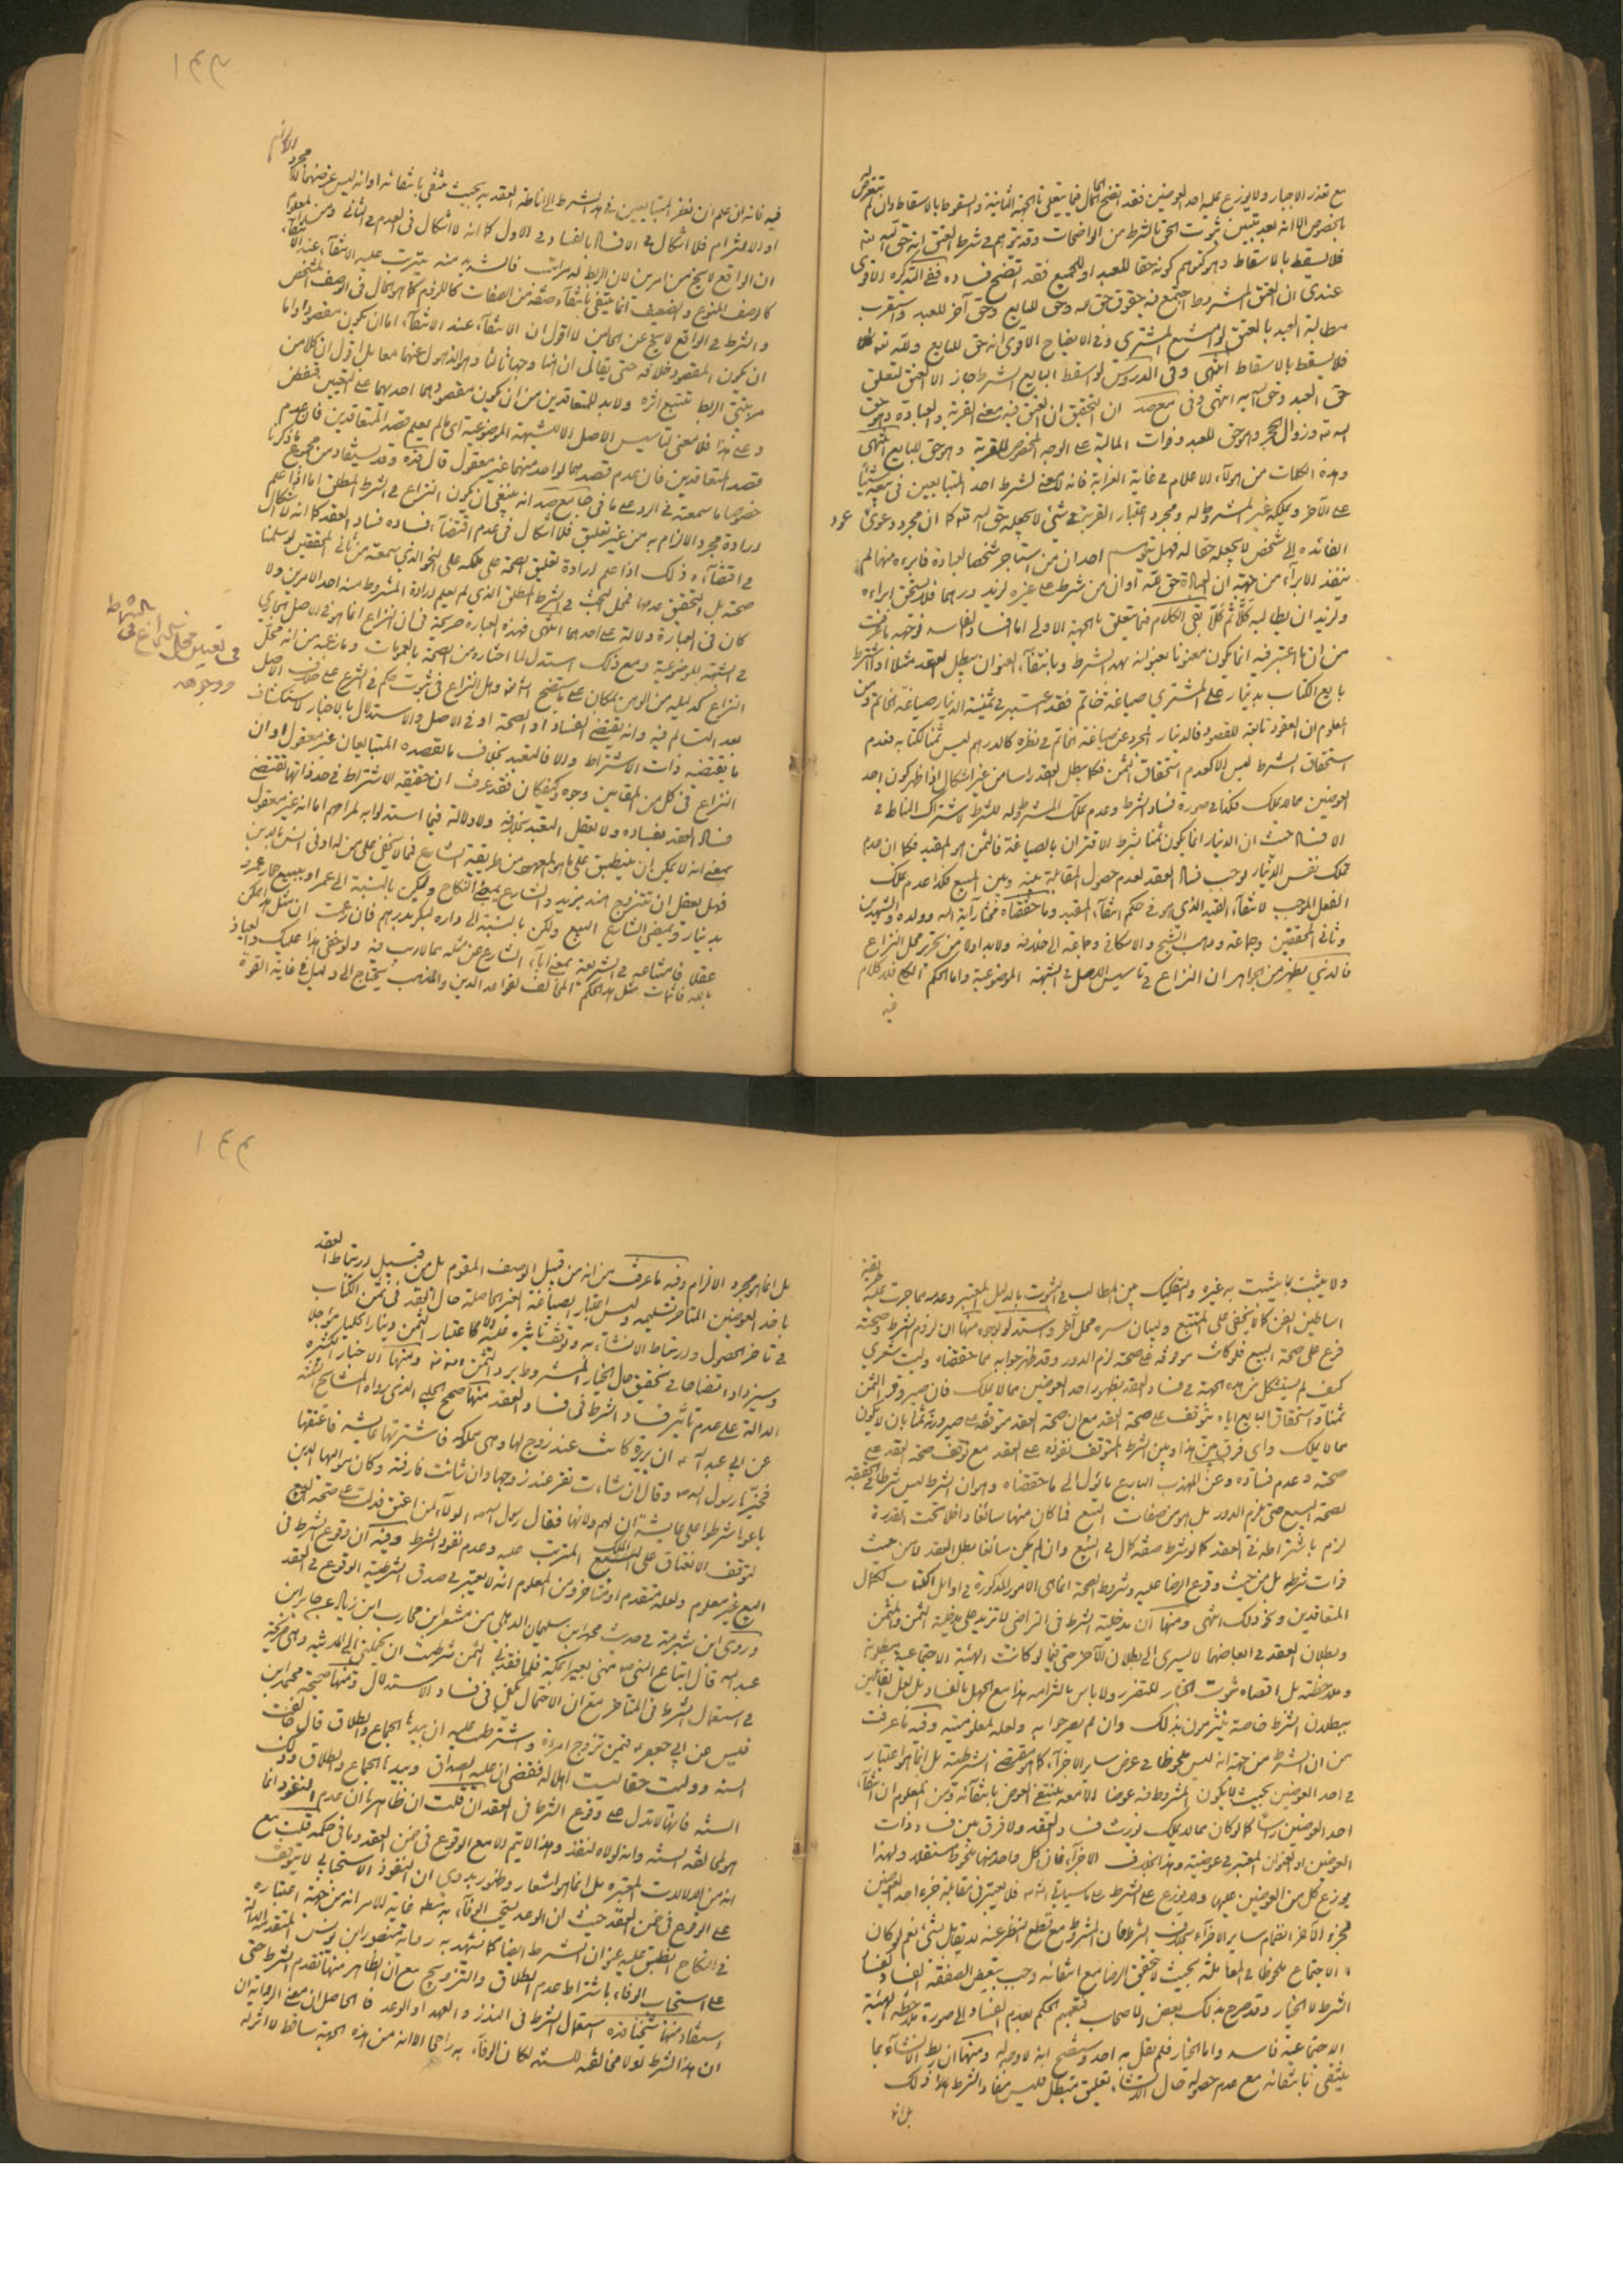 مع تعذر الاجبار ولا يوزع عليه احد العوضين فقد اتضح الحال فيما يتعلق بالجهة الثانية والسقوط بالاسقاط وان لم نتعرض له
بالخصوص الا انه بعد تبيين ثبوت الحق بالشرط من الواضحات وقد توهم في شرط العتق انه حق لله تعالى
فلا يسقط بالاسقاط وهو كتوهم كونه حقا للعبد او للجميع فقد اتضح فساده ففي التذكرة الاقوى
عندي ان العتق المشروط اجتمع فيه حقوق حق لله وحق للبايع وحق آخر للعبد واستقرب
مطالبة العبد بالعتق لو امتنع المشتري وفي الايضاح الاقوى انه حق للبايع ولله تعالى
فلا يسقط بالاسقاط انتهى وفي الدروس لو اسقط البايع الشرط جاز الا العتق لتعلق
حق العبد وحق الله به انتهى وفي مع صد ان التحقيق ان العتق فيه معنى القربة والعبادة وهو حق
الله تعالى وزوال الحجر وهو حق للعبد وفوات المالية على الوجه المخصوص للقربة وهو حق للبايع انتهى
وهذه الكلمات من هؤلاء الاعلام في غاية الغرابة فانه لا معنى لشرط احد المتبايعين في بيعه شيئا
على الآخر ويملكه غير المشروط له ومجرد اعتبار القربة في شئ لا يجعله حق الله تعالى كما ان مجرد دعوى عود
الفائدة الى شخص لا يجعله حقا له فهل توهم احد ان من استاجر شخصا لعبادة فابرءه منها لم
ينفذ الابرآء من جهة ان العبادة حق لله او ان من شرط على غيره لزيد درهما فلا يستحق ابراءه
ولزيد ان يطالبه كلا ثم كلا بقى الكلام فيما يتعلق بالجهة الاولى اما فساد الفاسد فوجهه ما عرفت
من ان ما اعتبر فيه انما يكون معنونا بعنوانه بهذا الشرط وبانتفاء العنوان يبطل العقد مثلا اذا اشترط
بايع الكتاب بدينار على المشتري صياغة خاتم فقد اعتبر في ثمنية الدينار صياغة الخاتم ومن
المعلوم ان العقود تابعة للقصود فالدينار المجرد عن صياغة الخاتم في نظره كالدرهم ليس ثمنا لكتابه فعدم
استحقاق الشرط ليس الا كعدم استحقاق الثمن فكما يبطل العقد راسا من غير اشكال اذا ظهر كون احد
العوضين مما لا يملك فكذا في صورة فساد الشرط وعدم ملك المشروط له للشرط لاشتراك المناط في
الافساد حيث ان الدينار انما يكون ثمنا بشرط الاقتران بالصياغة فالثمن هو المقيد فكما ان عدم
تملك نفس الدينار يوجب فساد العقد لعدم حصول المقابلة بينه وبين المبيع فكذا عدم ملك
الفعل الموجب لانتفاء القيد الذي هو في حكم انتفاء المقيد وما حققناه مختار آية الله وولده والشهيدين
وثاني المحققين وجماعة وذهب الشيخ والاسكافي وجماعة الى خلافه ولا بد اولا من تحرير محل النزاع
فالذي يظهر من الجواهر ان النزاع في تاسيس الاصل في الشبهة الموضوعية واما الحكم الواقع فلا كلام
فيه
١٤٣
فيه فانه ان علم ان نظر المتبايعين في هذا الشرط الى اناطة العقد به بحيث ينتفى بانتفائه او انه ليس غرضهما الا مجرد الالزام
او الالتزام فلا اشكال في الافساد بالفساد في الاول كما انه لا اشكال في العدم في الثاني ومن المعلوم
ان الواقع لا يخ من امرين لان الربط له مراتب فالشديد منه يترتب عليه الانتفاء عند الانتفاء
كالوصف المنوع والضعيف انما ينتفى بانتفاء صفة من الصفات كاللزوم كما هو الحال في الوصف الشخصي
والشرط في الواقع لا يخ عن الحالين لا اقول ان الانتفاء عند الانتفاء اما ان يكون مقصودا واما
ان يكون المقصود خلافه حتى يقال ان هنا وجها ثالثا وهو الذهول عنهما معا بل اقول ان كلا من
مرتبتي الربط تتبع اثره ولا بد للمتعاقدين من ان يكون مقصودهما احديهما على التعيين
وعلى هذا فلا معنى لتاسيس الاصل الا للشبهة الموضوعية اي ما لم يعلم قصد المتعاقدين فان عدم
قصد المتعاقدين فان عدم قصدهما لواحد منهما غير معقول قال قده وقد يستفاد من مجموع ما ذكرنا
خصوصا ما سمعته في الرد على ما في جامع صد انه ينبغي ان يكون النزاع في الشرط المطلق اما اذا علم
ارادة مجرد الالزام به من غير تعليق فلا اشكال في عدم اقتضاء فساده فساد العقد كما انه لا اشكال
في اقتضآءه ذلك اذا علم ارادة تعليق الصحة على حكمه على النحو الذي سمعته من ثاني المحققين لو سلمنا
صحته بل التحقيق عدمها فمحل البحث في الشرط المطلق الذي لم يعلم ارادة المشروط منه احد الامرين ولا
كان في العبارة دلالة على احدهما انتهى فهذه العبارة صريحة في ان النزاع انما هو في الاصل الجاري
في الشبهة الموضوعية ومع ذلك استدل لما اختاره من الصحة بالعمومات وما زعمه من انه محل
النزاع كدليله من الوهن بمكان على ما يتضح انشا الله وهل النزاع في ثبوت حكم في الشرع على خلاف الاصل
بعد التسالم فيه وانه يقتضي الفساد او الصحة او في الاصل والاستدلال بالاخبار لاستكشاف
ما يقتضيه ذات الاشتراط والا فالتعبد بخلاف ما قصده المتبايعان غير معقول او ان
النزاع في كل من المقامين وجوه وكيفكان فقد عرفت ان حقيقة الاشتراط في حد ذاتها تقتضي
فساد العقد بفساده ولا يعقل التعبد بخلافه ولا دلالة فيما استدلوا به لمرامهم اما انه غير معقول
بمعنى انه لا يمكن ان ينطبق على ما هو المعهود من طريقة الشارع فمما لا يخفى على من له ادنى انس بالدين
فهل يعقل ان تتزوج هند بزيد والشارع يمضي النكاح ولكن بالنسبة الى عمرو او يبيع حمارا عمرو
بدينار ويمضى الشارع البيع ولكن بالنسبة الى داره لبكر بدرهم فان زعمت ان مثل هذا ممكن
عقلا فامتناعه في الشريعة بمعنى اباء الشارع عن مثله مما لا ريب فيه ولو خفى هذا عليك والعياذ
بالله فاثبات مثل هذا الحكم المخالف لقواعد الدين والمذهب يحتاج الى دليل في غاية القوة
في تعيين محل النزاع في الشرط
ووجوهه
ولا يثبت بما يثبت به غيره والتفكيك بين المطالب في الثبوت بالدليل المعتبر وعدمه مما جرت عليه طريقة
اساطين الفن كما لا يخفى على المتتبع ولبيان سره محل آخر واستدلوا بوجوه منها ان لزوم الشرط وصحته
فرع على صحة البيع فلو كانت موقوفة على صحته لزم الدور وقد ظهر جوابه مما حققناه وليت شعري
كيف لم يستشكل من هذه الجهة في فساد العقد بظهور احد العوضين مما لا يملك فان صيرورة الثمن
ثمنا واستحقاق البايع اياه يتوقف على صحة العقد مع ان صحة العقد متوقفة على صيرورته ثمنا بان لا يكون
مما لا يملك واي فرق بين هذا وبين الشرط المتوقف نفوذه على العقد مع توقف صحة العقد على
صحته وعدم فساده وعن المهذب البارع ما يؤل الى ما حققناه وهو ان الشرط ليس شرطا في الحقيقة
لصحة البيع حتى يلزم الدور بل هو من صفات البيع فما كان منها سائغا داخلا تحت القدرة
لزم باشتراطه في العقد كما لو شرط صفة كمال في البيع وان لم يكن سائغا بطل العقد لا من حيث
ذات شرطه بل من حيث وقوع الرضا عليه وشروط الصحة انما هي الامور المذكورة في اوايل الكتاب ككمال
المتعاقدين ونحو ذلك انتهى ومنها ان مدخلية الشرط في التراضي لا تزيد على مدخلية الثمن والمثمن
وبطلان العقد في ابعاضهما لا يسرى الى بطلان الآخر حتى فيما لو كانت الهيئة الاجتماعية مطلوبة
وملاحظته بل اقصاه ثبوت الخيار للمتضرر ولا باس بالتزامه هذا مع الجهل بالفساد بل لعل القائلين
ببطلان الشرط خاصة يلتزمون بذلك وان لم يصرحوا به ولعله لمعلوميته وفيه ما عرفت
من ان الشرط من جهة انه ليس ملحوظا في عرض ساير الاجزآء كما هو مقتضى الشرطية بل انما هو اعتبار
في احد العوضين بحيث لا يكون المشروط فيه عوضا الا معه ينتفى العوض بانتفائه ومن المعلوم ان انتفآء
احد العوضين راسا كما لو كان مما لا يملك يورث فساد العقد ولا فرق بين فساد ذات
العوضين او العنوان المعتبر في عوضيته وهذا بخلاف الاجزآء فان كل واحد منها ملحوظ مستقلا ولهذا
يوزع كل من العوضين عليها ولا يوزع على الشرط على ما سياتي انشاء الله فلا يعتبر في مقابلة جزء احد العوضين
لجزء الآخر انضمام ساير الاجزآء بخلاف الشرط فان المشروط مع قطع النظر عنه لا يقابل بشئ نعم لو كان
الاجتماع ملحوظا في المعاملة بحيث لا يتحقق الرضا مع انتفائه وجب تبعض الصفقة الفساد لفساد
الشرط لا الخيار وقد صرح بذلك بعض الاصحاب فتعميم الحكم بعدم الفساد الى صورة ملاحظة الهيئة
الاجتماعية فاسد واما الخيار فلم يقل به احد وسيتضح انه لا وجه له ومنها ان ربط الانشآء بما
ينتفى بانتفائه مع عدم حصوله حال الانشآء تعليق مبطل فليس مفاد الشرط الا ذلك
بل انما
١٤٤
بل انما هو مجرد الالزام وفيه ما عرفت من انه من قبيل الوصف المقوم بل من قبيل ارتباط العقد
باحد العوضين المتاخر تسليمه وليس اعتبار الصياغة الغير الحاصلة حال العقد في ثمن الكتاب
في تاخر الحصول وارتباط الانشآء به وتوقف تاثيره عليه الا كاعتبار الثمن دينارا كليا مؤجلا
وسيزداد اتضاحا في تحقيق حال الخيار المشروط برد الثمن انشاء الله ومنها الاخبار الكثيرة
الدالة على عدم تاثير فساد الشرط في فساد العقد منها صحيح الحلبي الذي رواه المشايخ الثلثة
عن ابي عبد الله ان بريرة كانت عند زوج لها وهي مملوكة فاشترتها عايشة فاعتقتها
فخيرها رسول الله ص وقال ان شاءت تقر عند زوجها وان شائت فارقته وكان مواليها الذين
باعوها شرطوا على عايشة ان لهم ولائها فقال رسول الله ص الولآء لمن اعتق فدلت على صحة البيع
لتوقف الانعتاق على الملك المترتب عليه وعدم نفوذ الشرط وفيه ان وقوع الشرط في
البيع غير معلوم ولعله متقدم او متاخر ومن المعلوم انه لا يعتبر في صدق الشرطية الوقوع في العقد
وروى ابن شبرمة في حديث محمد بن سليمان الديلمي من مشعر بن محارب ابن زياد عن جابر بن
عبد الله قال ابتاع النبي ص مني بعيرا بمكة فلما نقدني الثمن شرطت ان يحملني الى المدينة وهي صريحة
في استعمال الشرط في المتاخر مع ان الاحتمال يكفي في فساد الاستدلال ومنها صحيحة محمد ابن
قيس عن ابي جعفر ع فيمن تزوج امراة واشترطت عليه ان بيدها الجماع والطلاق قال خالفت
السنة وولت حقا ليست اهلا له فقضى ان عليه الصداق وبيده الجماع والطلاق وذلك
السنة فانها لا تدل على وقوع الشرط في العقد ان قلت ان ظاهرها ان عدم النفوذ انما
هو لمخالفة السنة وانه لولاه لنفذ وهذا لا يتم الا مع الوقوع في ضمن العقد وما في حكمه قلت مع
انه من الدلالات المعتبرة بل انما هو اشعار وظهور بدوي ان النفوذ الاستحبابي لا يتوقف
على الوقوع في ضمن العقد حيث ان الوعد يستحب الوفاء به شطه غاية الامر انه من جهة اعتباره
في النكاح انطبق عليه عنوان الشرط ايضا كما تشهد به رواية منصور ابن يونس المتقدمة الدالة
على استحباب الوفاء باشتراط عدم الطلاق والتزويج مع ان الظاهر منها تقدم الشرط حتى
استفاد منها شيخنا قده استعمال الشرط في النذر والعهد او الوعد فالحاصل ان معنى الرواية ان
ان هذا الشرط لولا مخالفته للسنة لكان الوفاء به راجحا الا انه من هذه الجهة ساقط لا اثر له